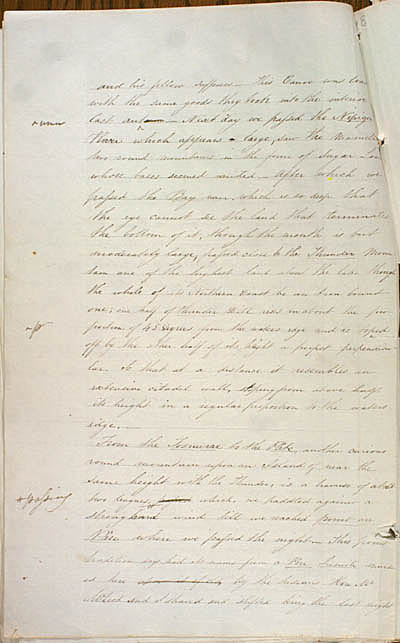 8
and his fellow sufferers — This Canoe was loa
with the same goods they took into the interior
last autumn Next day we passed the Nipigon
River which appears large, saw the Mamelles
two round mountains in the form of Sugar Loa
whose bases seemed united — After which we
passed the Bay which is so deep that
the eye cannot see the land that terminates
the bottom of it, though the mouth is not
moderately large, passed close to the Thunder Moun
tain one of the highest land upon the Lake though
the whole of its Northern Coast be an Iron bound
one; one half of Thunder Hill rises in about the pro
portion of 45 degrees from the waters edge and is
off by the other half of its height a perfect perpendicu
lar. So that at a distance it resembles an
extensive citadel wall, sloping from above half
its height in a regular proportion to the waters
edge. —
From the to the Paté, another curious
round mountain upon an Island of near the
same height with the Thunder, is a traverse of about
two leagues, which, we paddled against a
strong hard wind till we reached Point au
Père where we passed the night — This point
tradition says had its name from a Père French
as here by the Indians Hon. Mr
McLeod and I shared and slept during the last night
passing